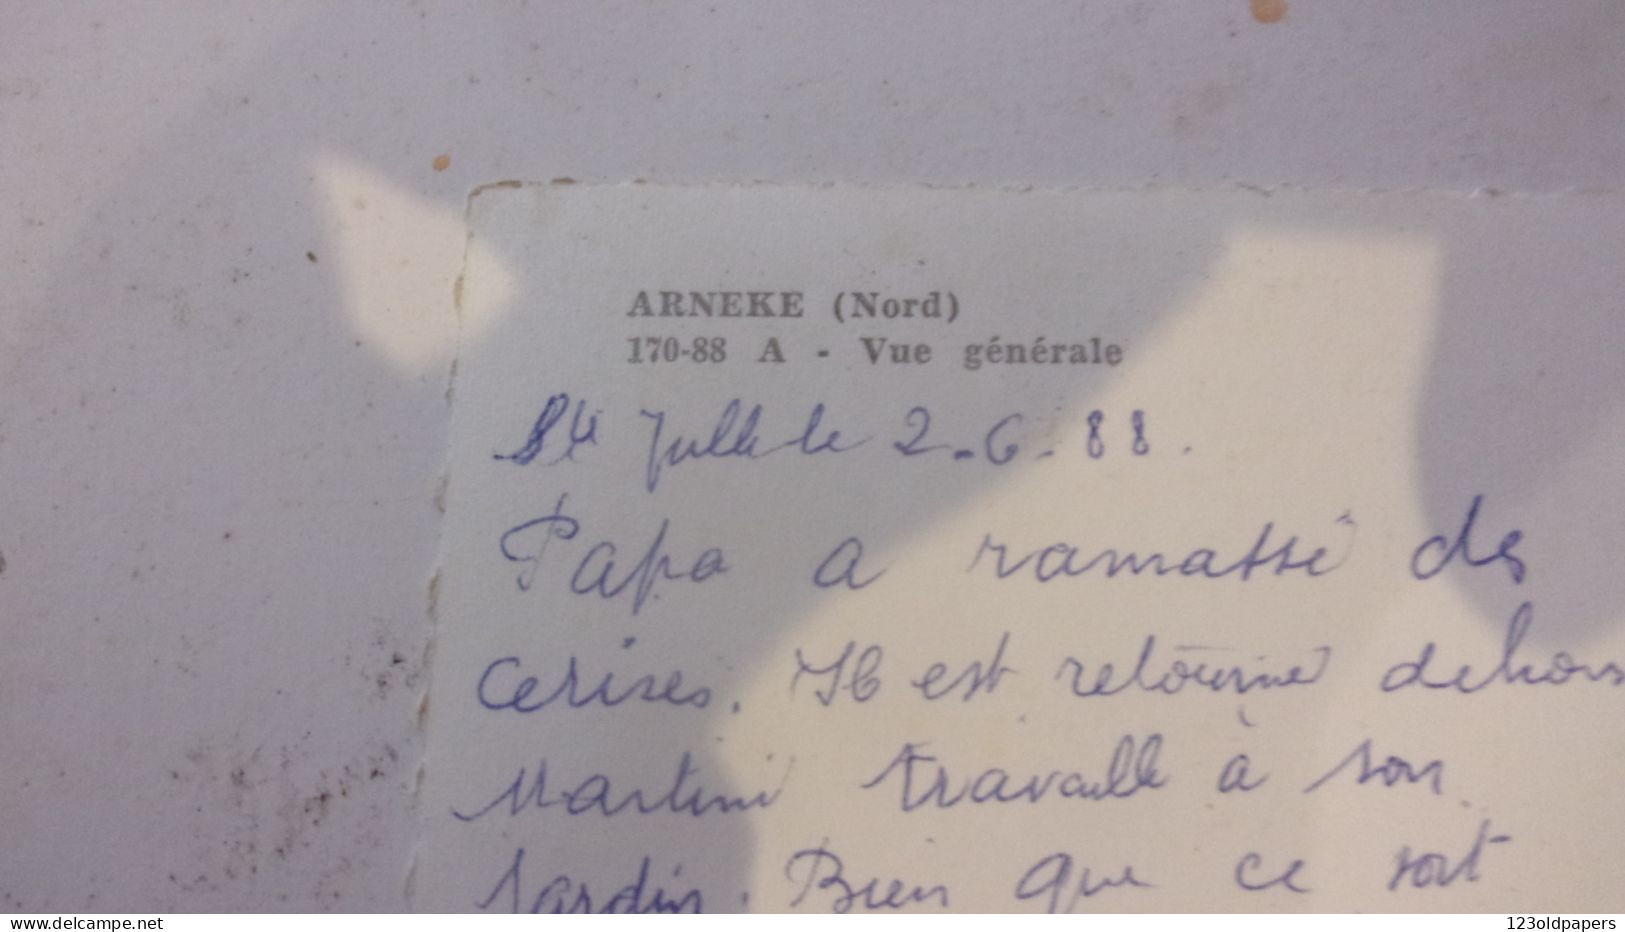 ARNEKE (Nord)
170-88 A - Vue générale
le 2-6-88.
Papa a ramassé des
cerises. Il est retourné dehors
travaille à son
jardin. Bien que ce soit
delcampe.net
123oldpapers